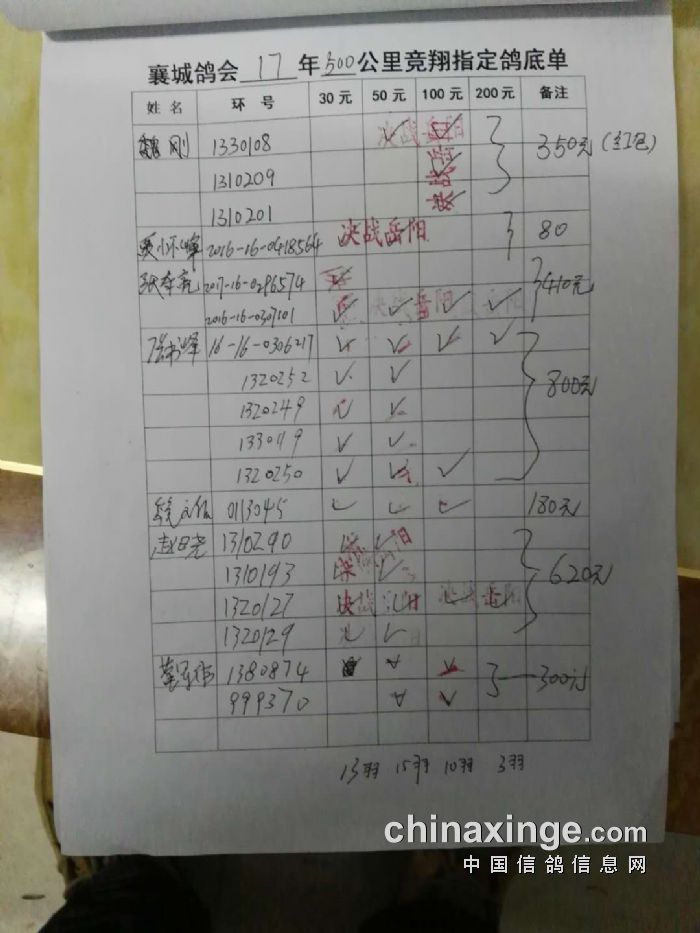 襄城鸽会 17 年 500 公里竞翔指定鸽底单
姓名 环号 30元 50元 100元 200元 备注
魏刚 1330108 决战岳阳 350元(红包)
1310209 决战
1310201 决
2016-16-0418564 决战岳阳 80
2017-16-0296574 410元
2016-16-0307101 决战岳阳
16-16-0306217
1320252 800元
1320249
1320250
0113045 180元
赵日尧 1310290 阳
1310193 决 620元
1320127 决战 阳 决战岳阳
1320129
1380874 300元
999370
13羽 15羽 10羽 3羽
chinaxinge.com
中国信鸽信息网